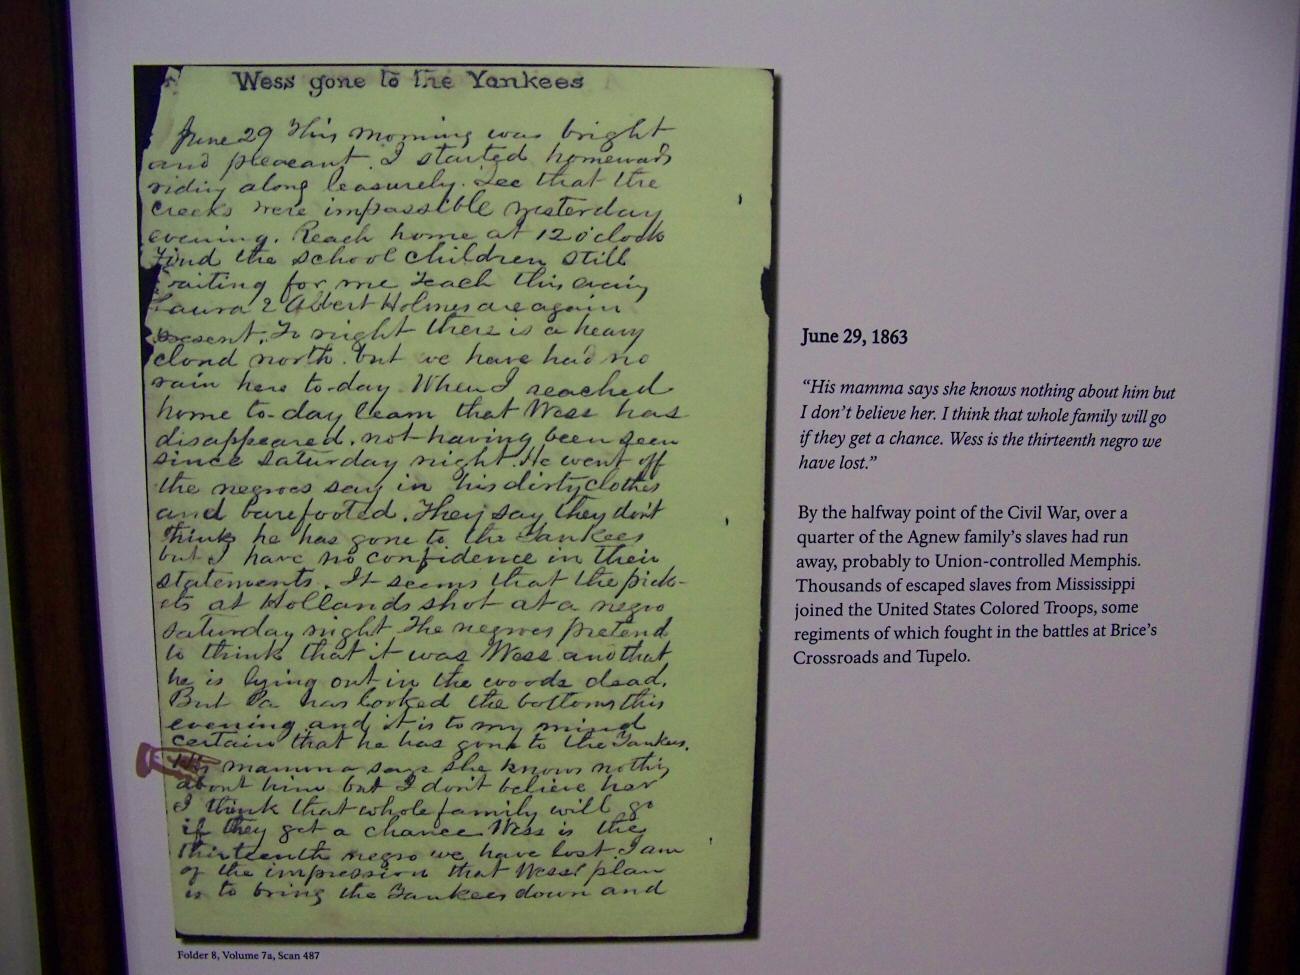 Wess gone to the Yankees
June 29 This morning was bright
and pleasant. I started homeward
riding along leasurely. See that the
creeks were impassible yesterday
evening. Reach home at 12 o'clock
Find the school children still
waiting for me Teach this evening
Laura & Albert Holmes are again
present. To night there is a heavy
cloud north. but we have had no
rain here to-day. When I reached
home to-day learn that Wess has
disappeared, not having been seen
since Saturday night. He went off
the negroes say in his dirty clothes
and barefooted. They say they don't
think he has gone to the Yankees
but I have no confidence in their
statements. It seems that the pick-
ets at Hollands shot at a negro
Saturday night The negroes pretend
to think that it was Wess and that
he is lying out in the woods dead.
But Pa has looked the bottoms this
evening and it is to my mind
certain that he has gone to the Yankees.
His mamma says she knows nothing
about him but I don't believe her
I think that whole family will go
if they get a chance Wess is the
thirteenth negro we have lost. I am
of the impression that Wess' plan
is to bring the Yankees down and
Folder 8, Volume 7a, Scan 487
June 29, 1863
“His mamma says she knows nothing about him but
I don’t believe her. I think that whole family will go
if they get a chance. Wess is the thirteenth negro we
have lost.”
By the halfway point of the Civil War, over a
quarter of the Agnew family’s slaves had run
away, probably to Union-controlled Memphis.
Thousands of escaped slaves from Mississippi
joined the United States Colored Troops, some
regiments of which fought in the battles at Brice’s
Crossroads and Tupelo.